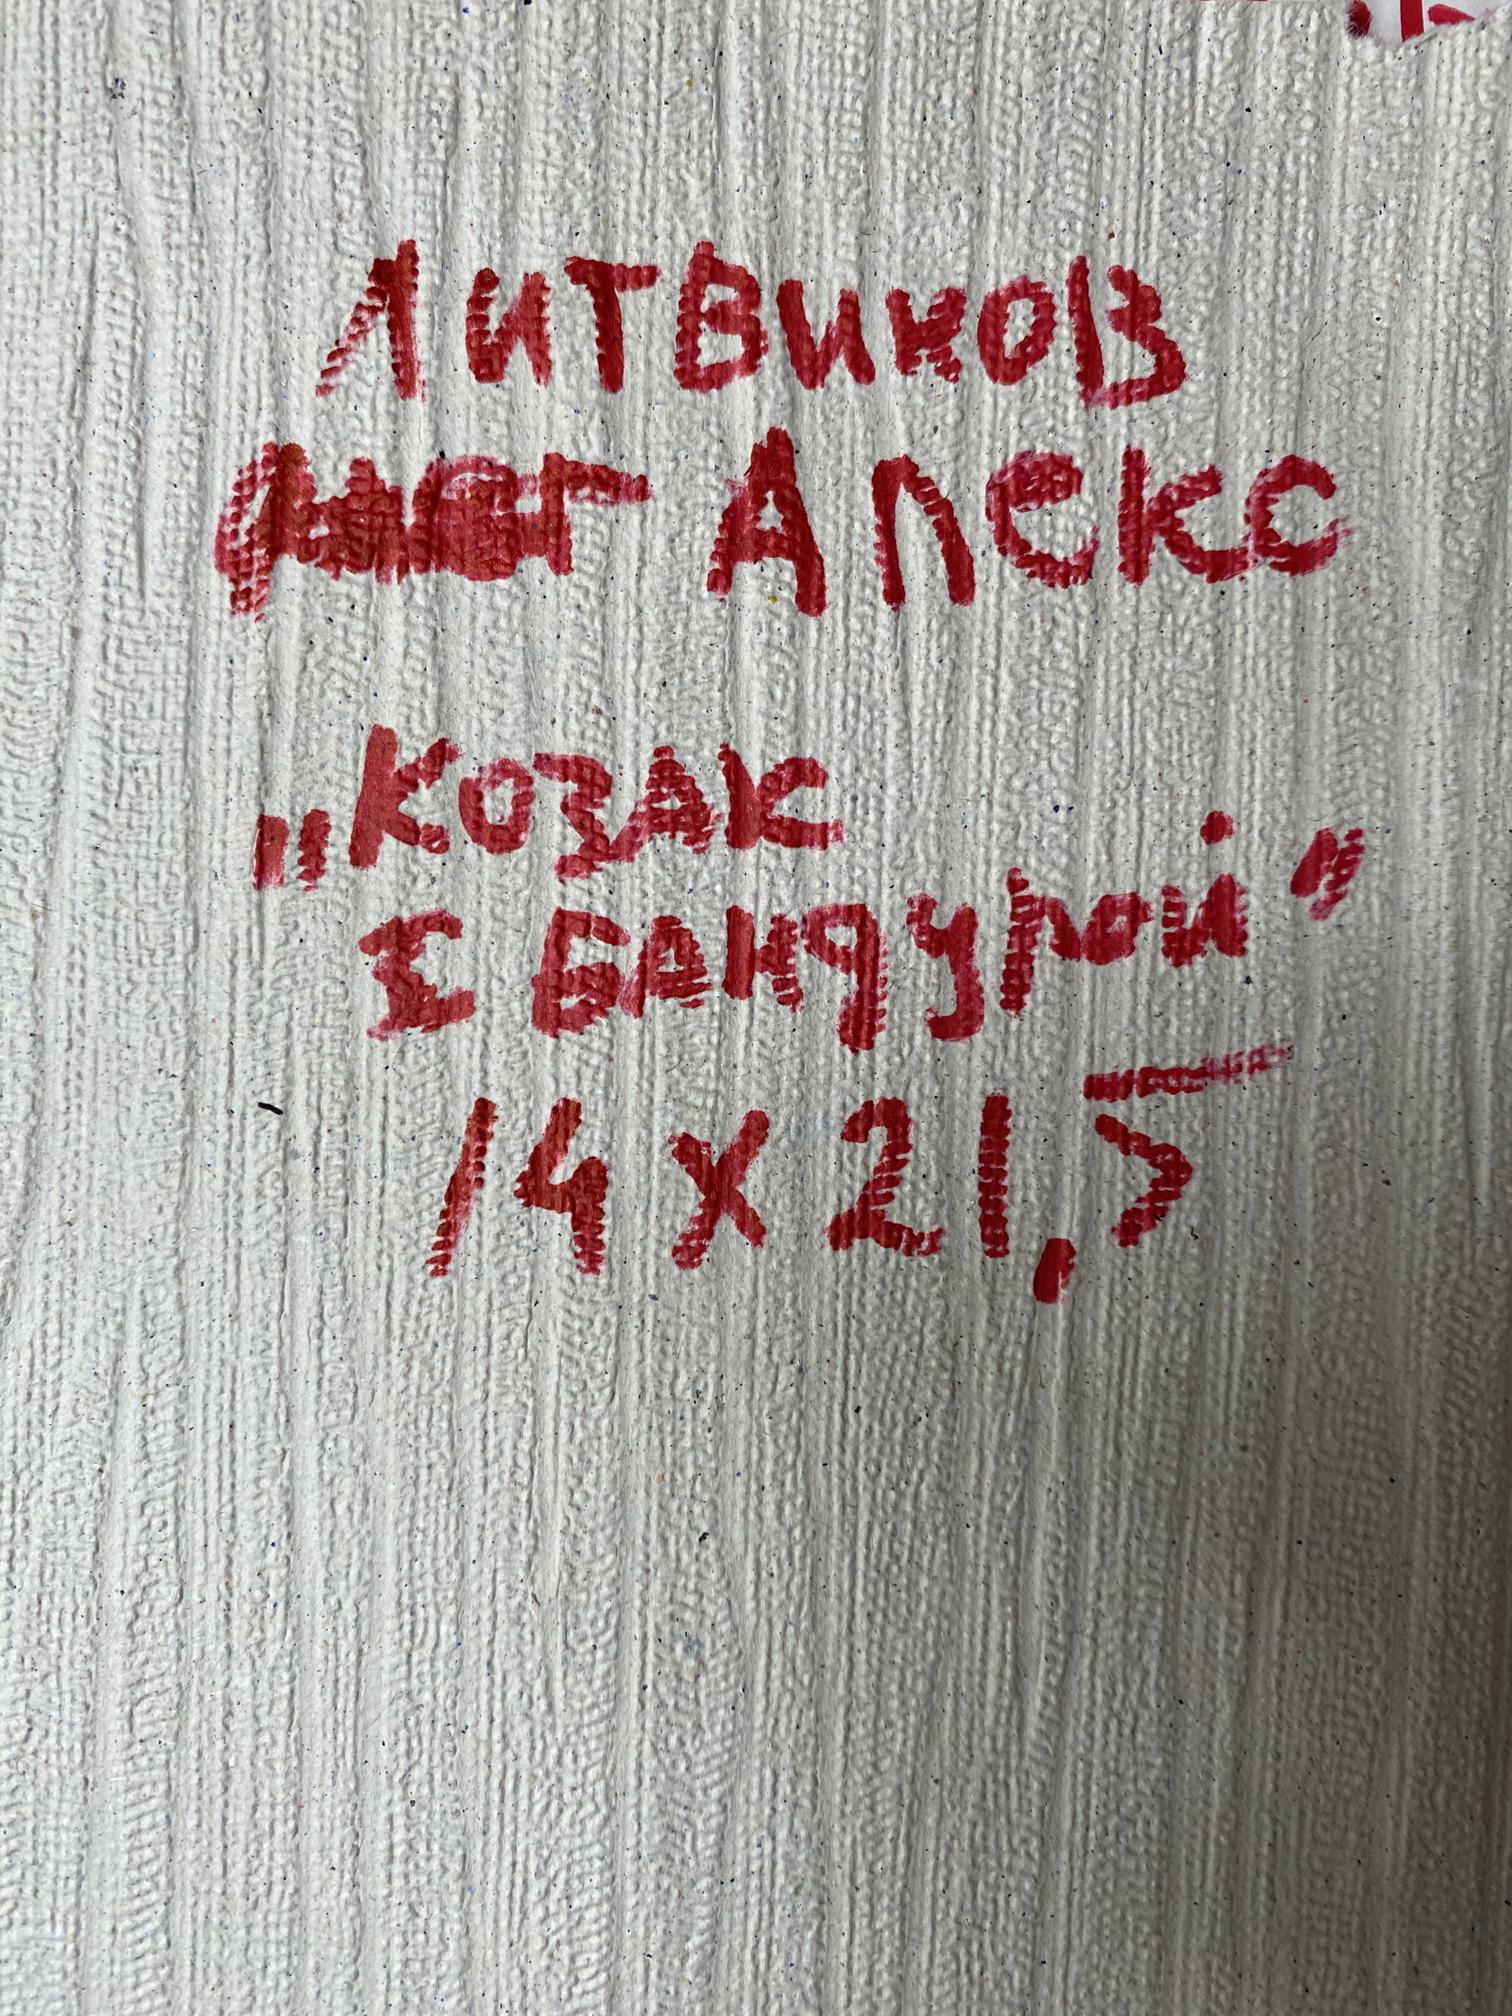 Литвиков
Алекс
„Козак
з Бандурой”
14 х 21,5